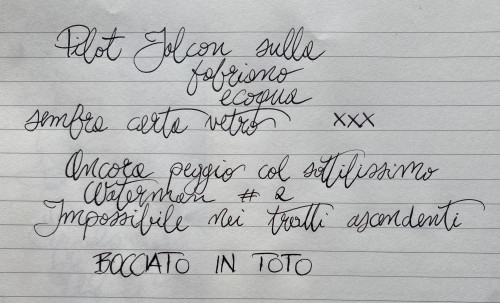 Pilot Falcon sulla
fabriano
ecoqua
sembra carta vetro xxx
Ancora peggio col sottilissimo
Waterman # 2
Impossibile nei tratti ascendenti
BOCCIATO IN TOTO